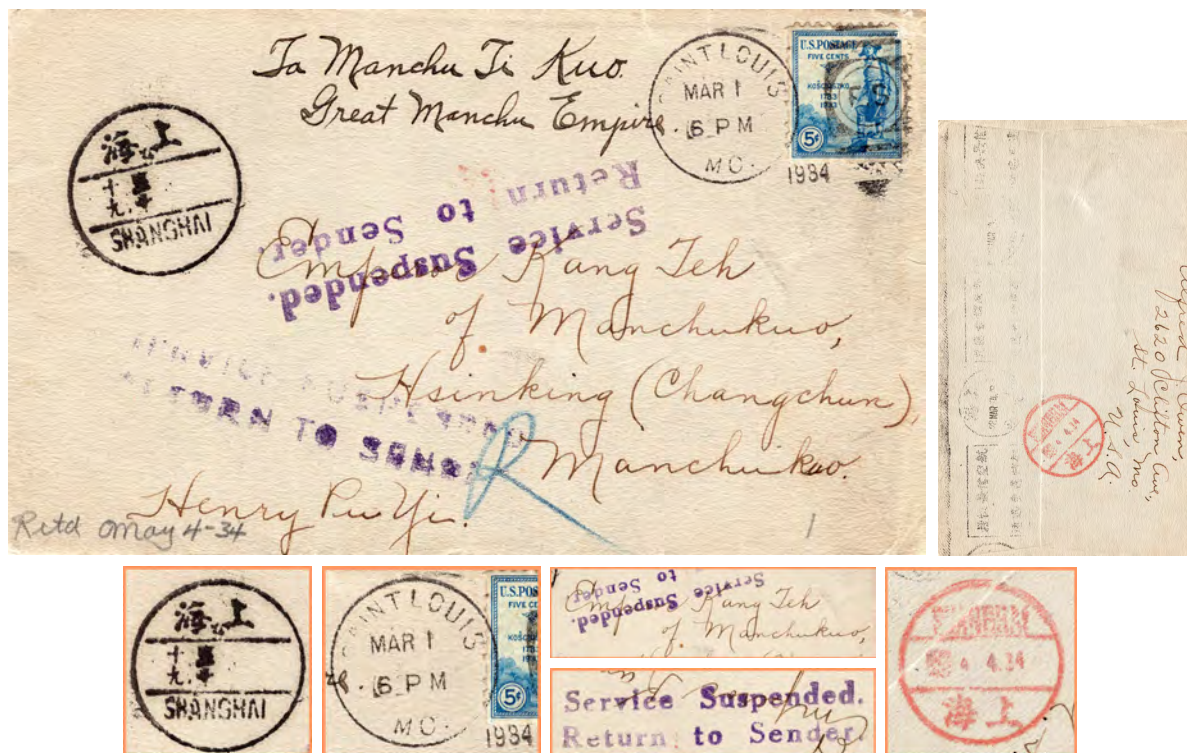 Ta Manchu Ti Kuo.
Great Manchu Empire
SAINT LOUIS
MAR 1
6 PM
MO.
1934
U.S.POSTAGE
FIVE CENTS
KOSCIUSZKO
1783
1933
5¢
上海
SHANGHAI
Service Suspended.
Return to Sender.
Emperor Kang Teh
of Manchukuo,
Hsinking (Changchun),
Manchukuo.
SERVICE SUSPENDED
RETURN TO SENDER
R
Henry Pu Yi.
Retd May 4-34
1
Alfred Owen,
2620 Clifton Ave,
St. Louis, Mo.
U.S.A.
SHANGHAI
4 4.34
上海
上海
SHANGHAI
SAINT LOUIS
MAR 1
6 PM
MO.
1934
U.S.POS
FIVE CE
5¢
Service Suspended.
to Sender
Kang Teh
of Manchukuo,
Service Suspended.
Return to Sender
SHANGHAI
4 4.34
上海